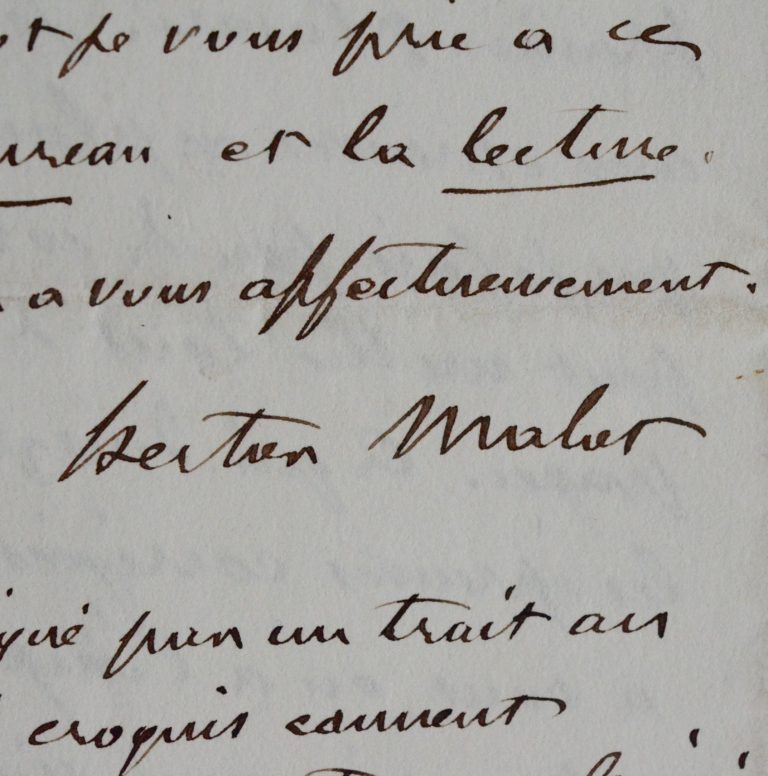 je vous prie a ces
et la lecture.
a vous affectueusement.
Hector Malot
par un trait au
croquis comment